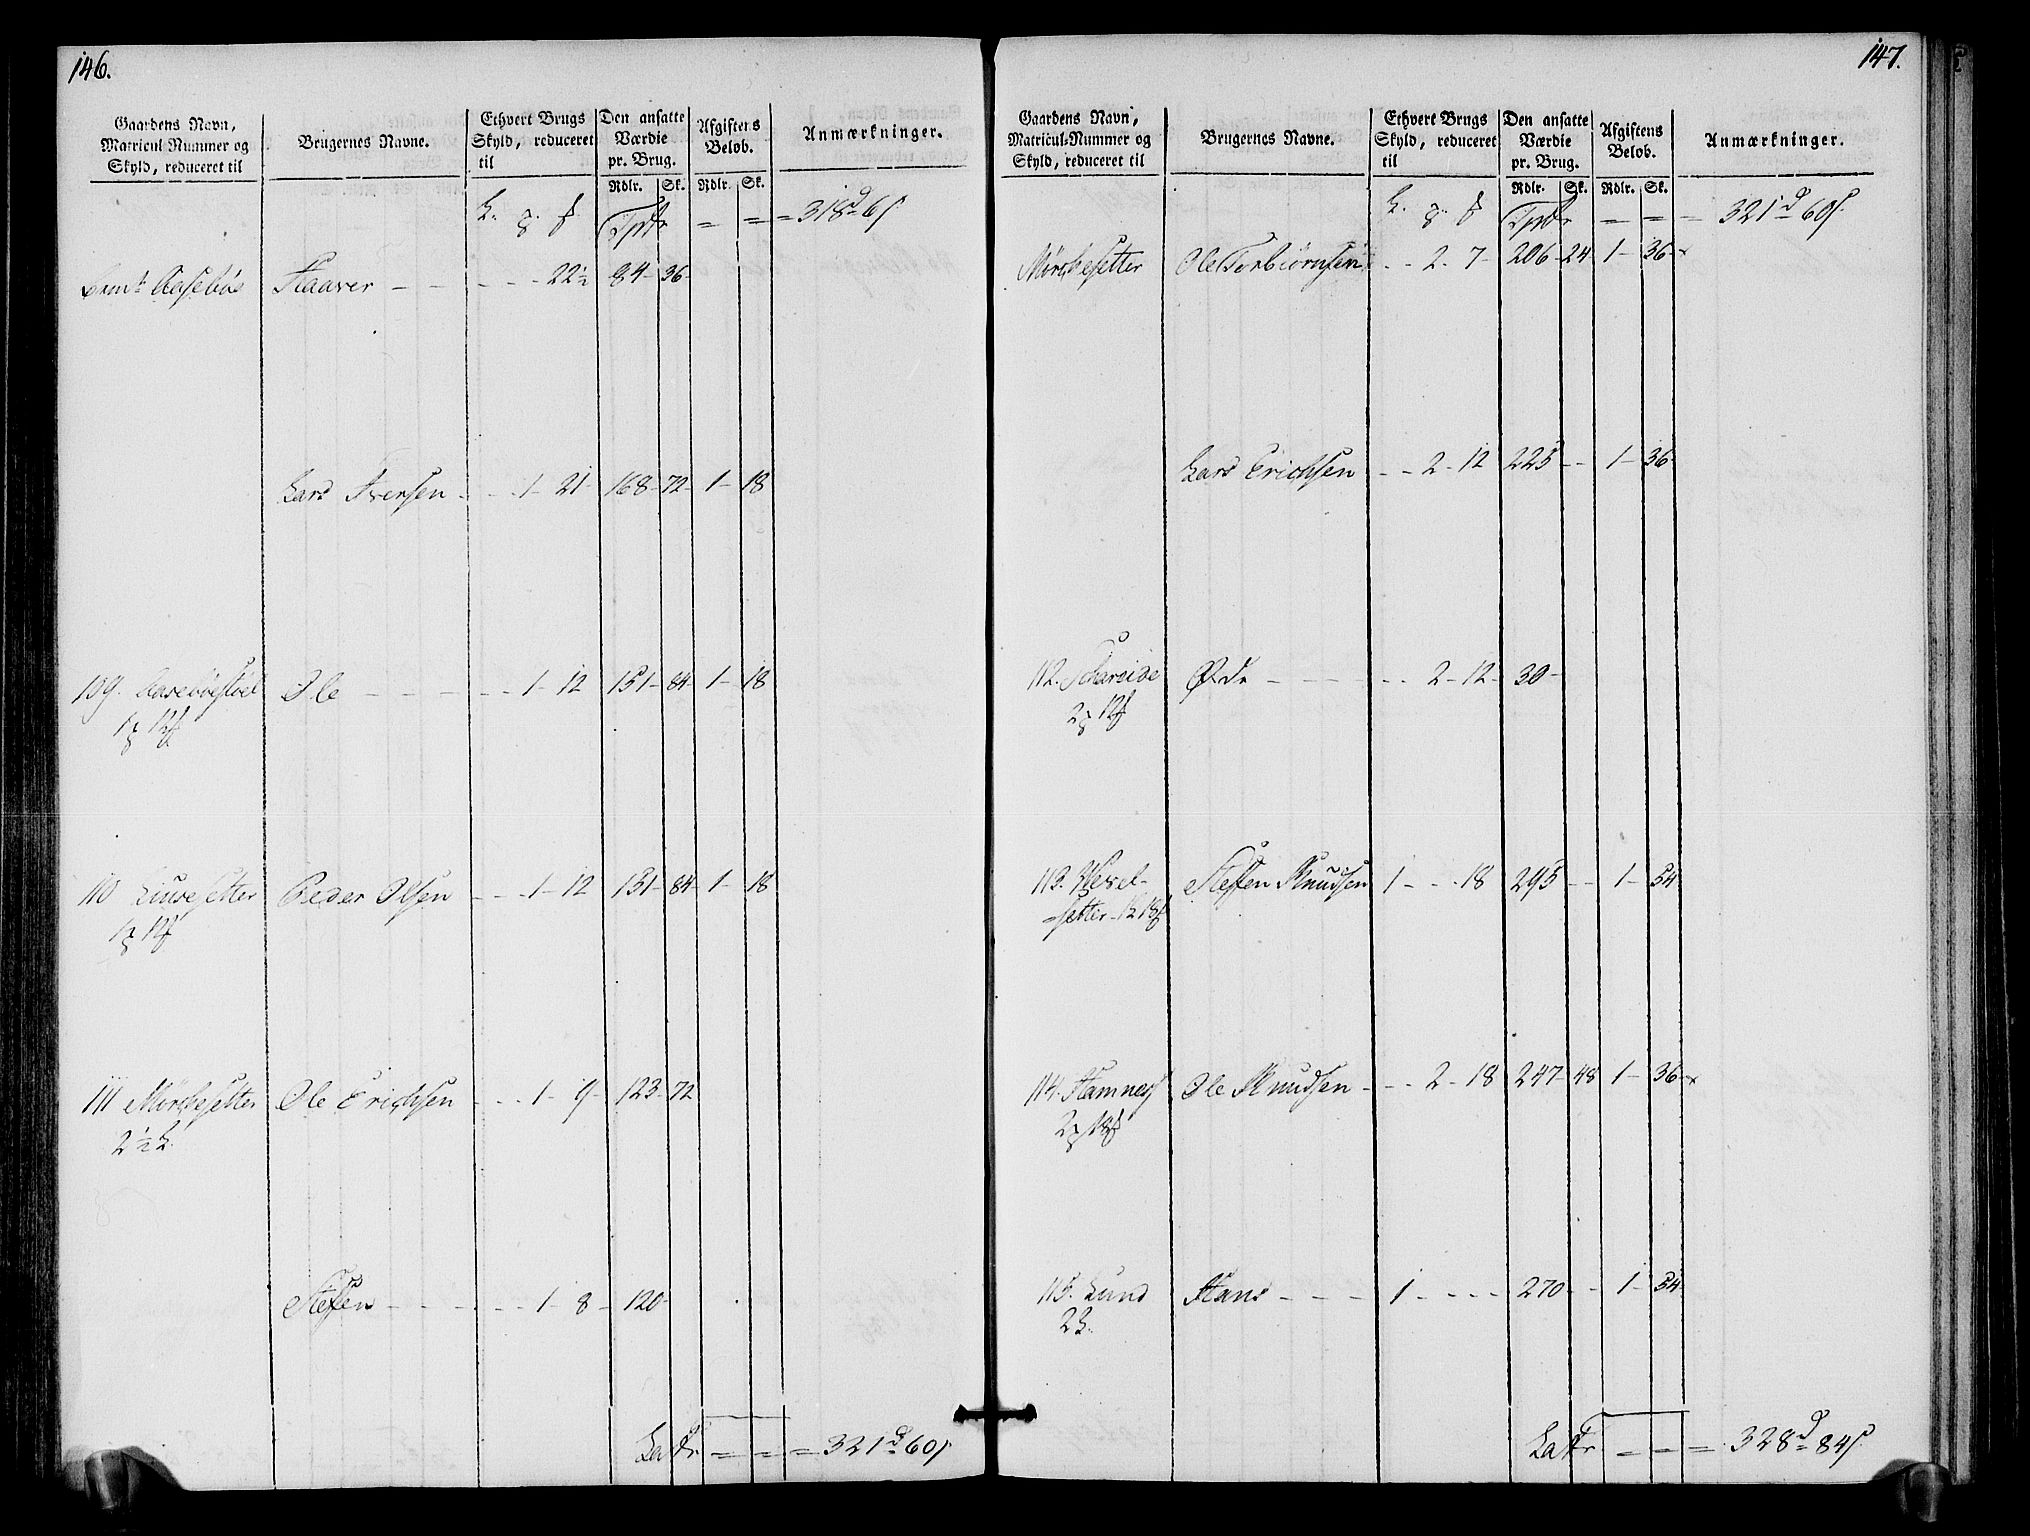 146.
Gaardens Navn, Matricul-Nummer og Skyld, reduceret til
Brugernes Navne.
Ethvert Brugs Skyld, reduceret til
Den ansatte Værdie pr. Brug.
Afgiftens Beløb.
Anmærkninger.
Rdlr. Sk. Rdlr. Sk.
Tpt = = = 318 d 6 s.
Aasebøe Haaver - - - - 22½ 84 - 36 -
Lars Iversen - - - 1 - 21 - 168 - 72 - 1 - 18
109. Ole - - - - - 1 - 12 151 - 84 - 1 - 18
12
110 Peder Olsen - - - 1 - 12 151 - 84 - 1 - 18
12
111 Mörchesetter Ole Erichsen - - - 1 - 9 - 123 - 72
2½
Steffen - - - - - - 1 - 8 - 120 -
= = = 321 d 60 s.
147.
Gaardens Navn, Matricul-Nummer og Skyld, reduceret til
Brugernes Navne.
Ethvert Brugs Skyld, reduceret til
Den ansatte Værdie pr. Brug.
Afgiftens Beløb.
Anmærkninger.
Rdlr. Sk. Rdlr. Sk.
= = = 321 d 60 s.
Mörchesetter Ole Torbiörnsen - - 2 - 7 - 206 - 24 1 - 36 -
Lars Erichsen - - 2 - 12 225 - - 1 - 36 -
112. Schareide Øde - - - - - - 2 - 12 - 30 -
2 12
113. Wexel- Steffen Knudsen 1 - - - 18 295 - - 1 - 54
=setter 18
114. Hamnes Ole Knudsen - - - 2 - 18 247 - 48 1 - 36 -
2 18
115. Lund Hans - - - - 1 - - - - 270 - - 1 - 54
2
= = = 328 d 84 s.